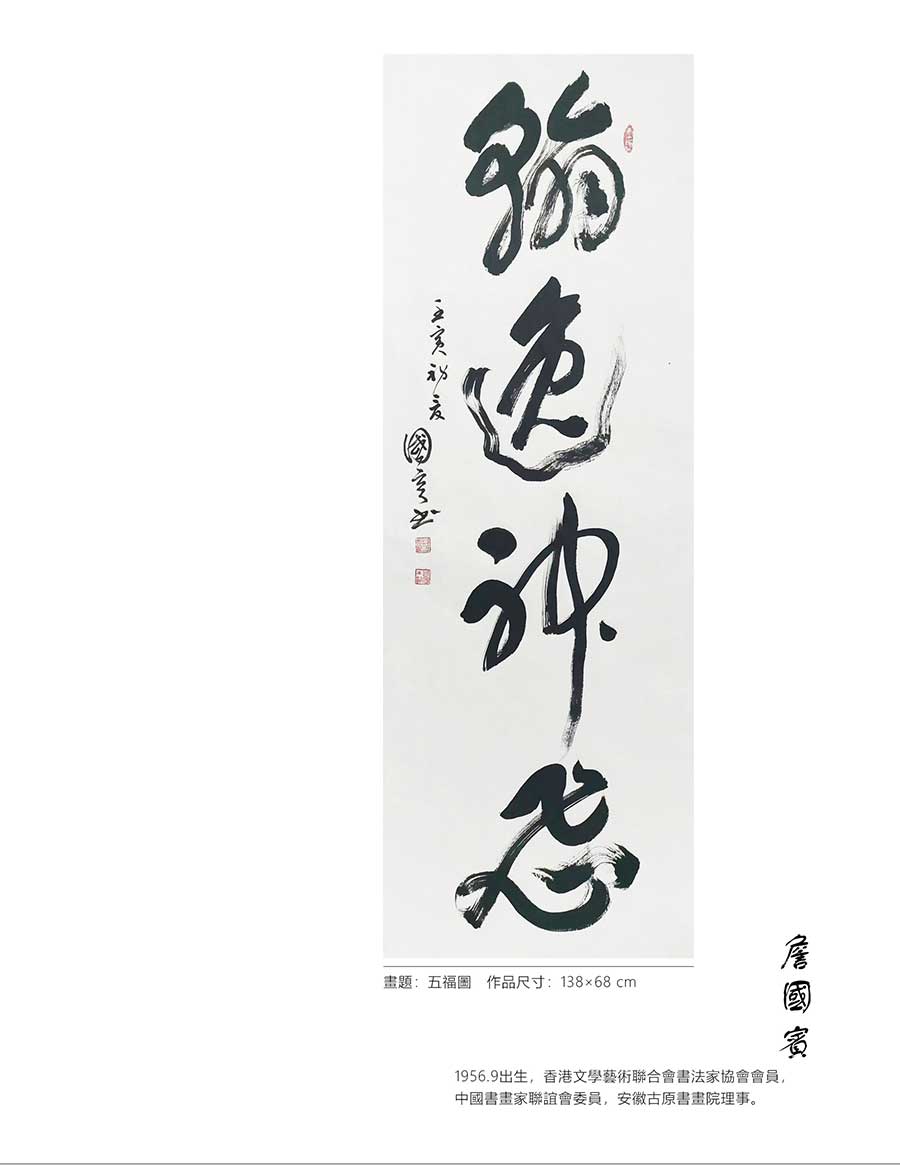 翰逸神飛
壬寅初夏
國賓書
畫題：五福圖　作品尺寸：138×68 cm
詹國賓
1956.9出生，香港文學藝術聯合會書法家協會會員，
中國書畫家聯誼會委員，安徽古原書畫院理事。